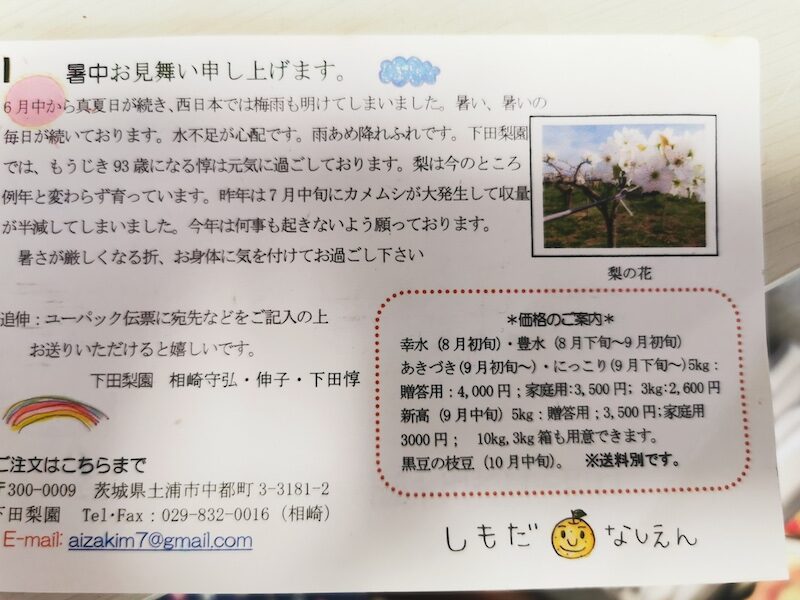 暑中お見舞い申し上げます。
6月中から真夏日が続き、西日本では梅雨も明けてしまいました。暑い、暑いの
毎日が続いております。水不足が心配です。雨あめ降れふれです。下田梨園
では、もうじき93歳になる惇は元気に過ごしております。梨は今のところ
例年と変わらず育っています。昨年は7月中旬にカメムシが大発生して収量
が半減してしまいました。今年は何事も起きないよう願っております。
暑さが厳しくなる折、お身体に気を付けてお過ごし下さい
梨の花
追伸：ユーパック伝票に宛先などをご記入の上
お送りいただけると嬉しいです。
下田梨園 相崎守弘・伸子・下田惇
＊価格のご案内＊
幸水（8月初旬）・豊水（8月下旬～9月初旬）
あきづき(9月初旬～)・にっこり(9月下旬～)5kg：
贈答用：4,000円；家庭用:3,500円； 3kg:2,600円
新高（9月中旬）5kg：贈答用；3,500円;家庭用
3000円； 10kg,3kg箱も用意できます。
黒豆の枝豆（10月中旬）。 ※送料別です。
ご注文はこちらまで
〒300-0009 茨城県土浦市中都町3-3181-2
下田梨園 Tel･Fax：029-832-0016（相崎）
E-mail: aizakim7@gmail.com
しもだ なしえん